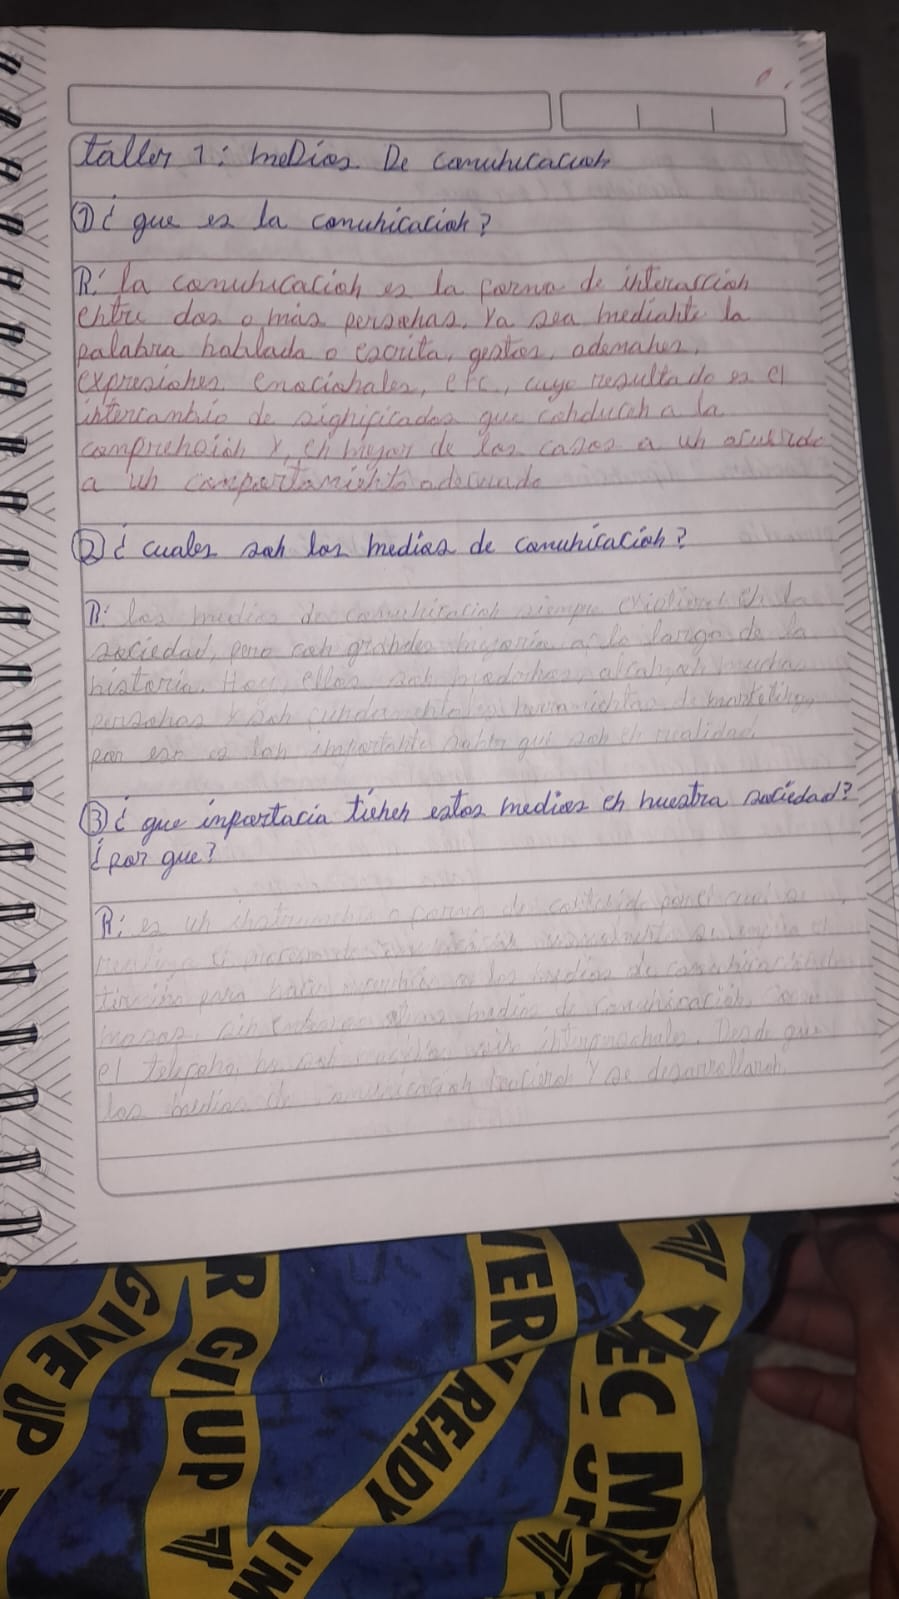 taller 1: meDios De comunicacion
① ¿ que es la comunicacion?
R: la comunicacion es la forma de interaccion
entre dos o más personas, Ya sea mediante la
palabra hablada o escrita, gestos, ademanes,
expresiones emocionales, etc., cuyo resultado es el
intercambio de significados que conducen a la
comprehoion Y, en mejor de los casos a un acuerdo
a un compartamiento adecuado
② ¿ cuales son los medios de comunicacion?
R: los medios de comunicacion siempre existieron en la
sociedad, pero con grandes a lo largo de la
historia. Hoy, ellos son alcanzan muchas
personas Y son fundamentales de marketing,
por eso es tan importante saber que son en realidad.
③ ¿ que inportacia tienen estos medios en nuestra sociedad?
¿ por que?
R: es un instrumento o forma de el cual se
el
para hacer a los medios de comunicacion
masas, sin embargo otros medios de comunicacion, como
el telefono, no son Desde que
los medios de comunicacion Y se desarrollaron.
GIVE UP
R GI UP
VER
READY
I'M
TEC
MK